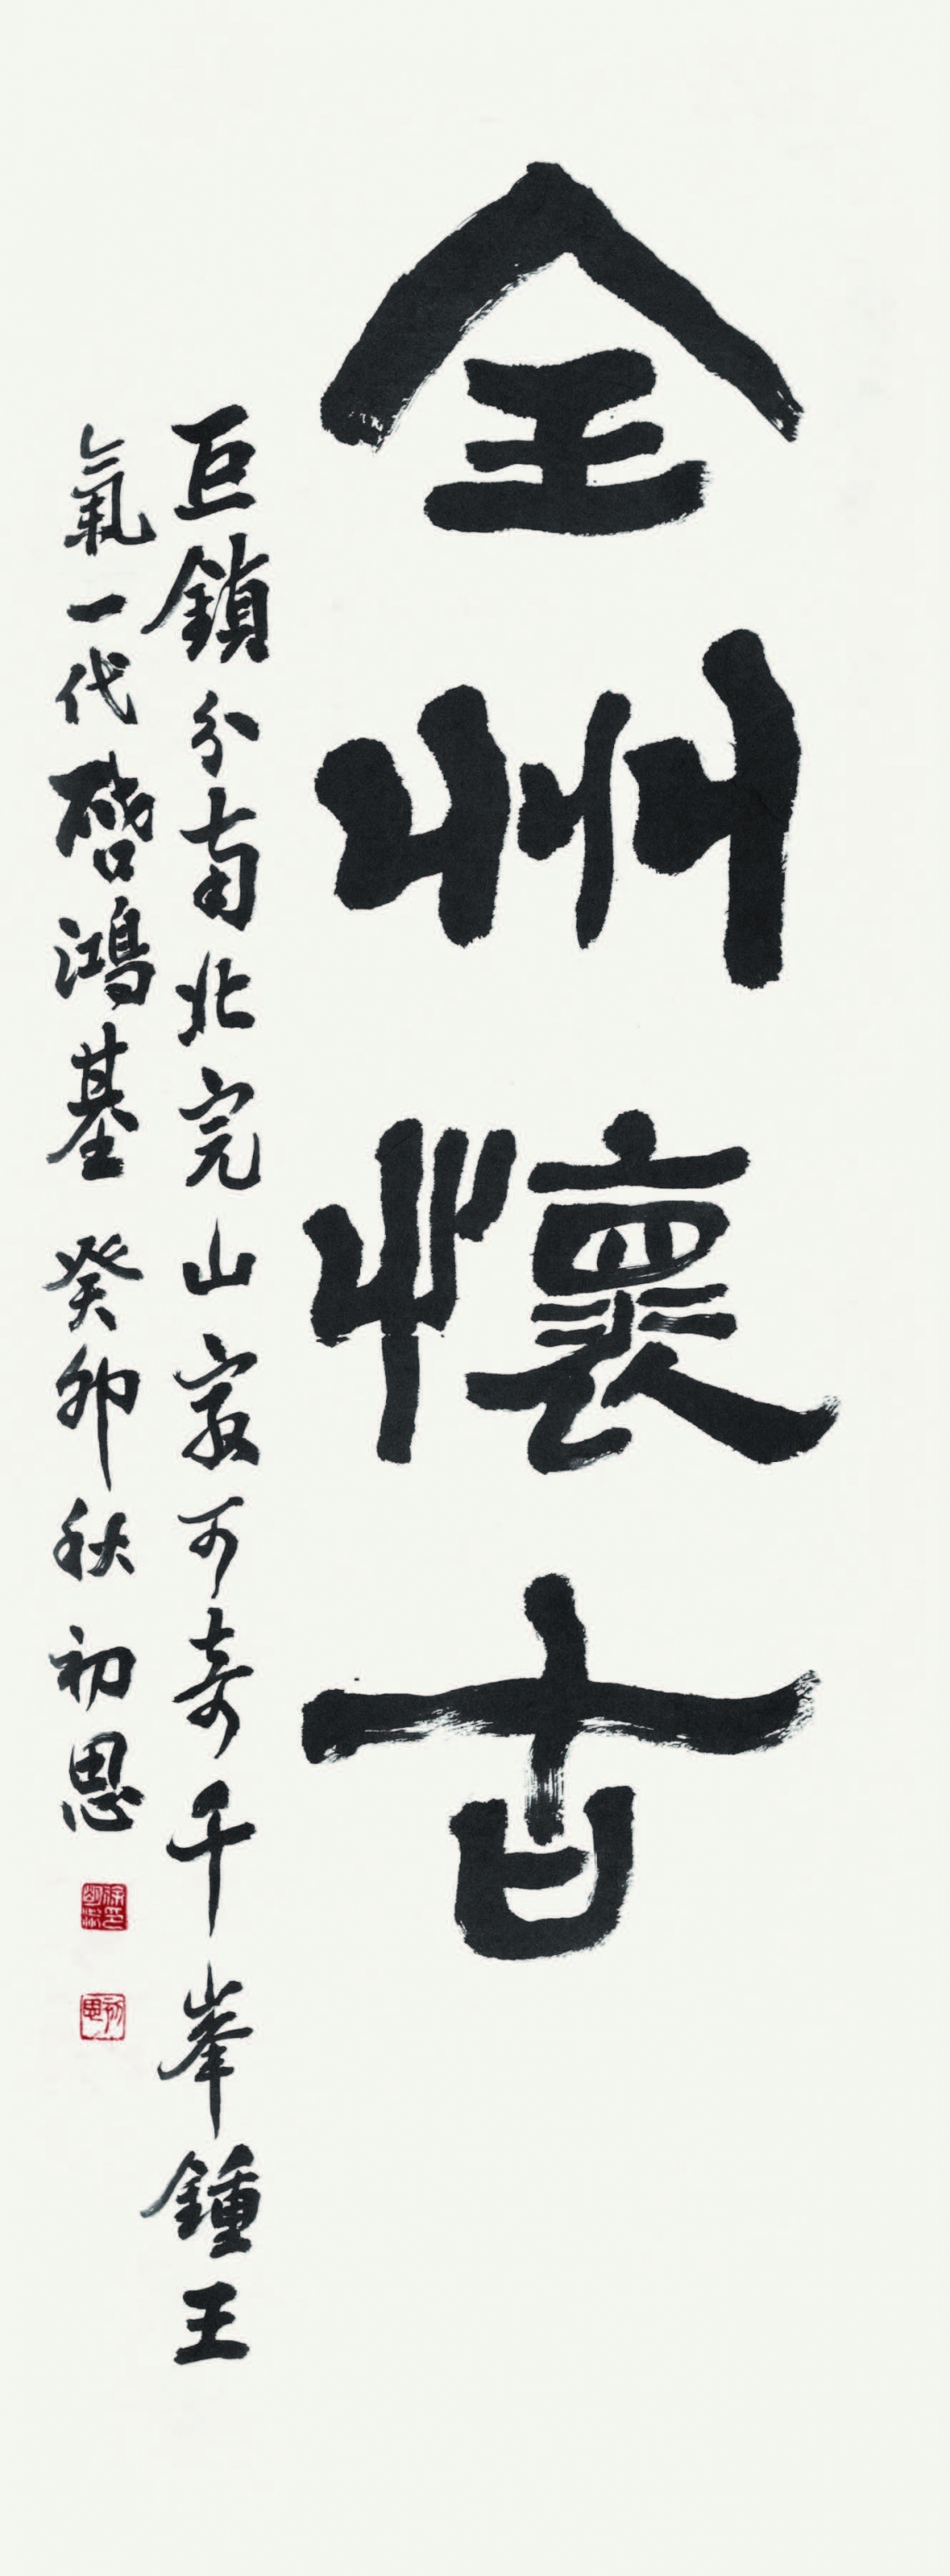 全州懷古
巨鎭分南北完山最可奇千峯鍾王
氣一代啓鴻基 癸卯秋 初思
初思